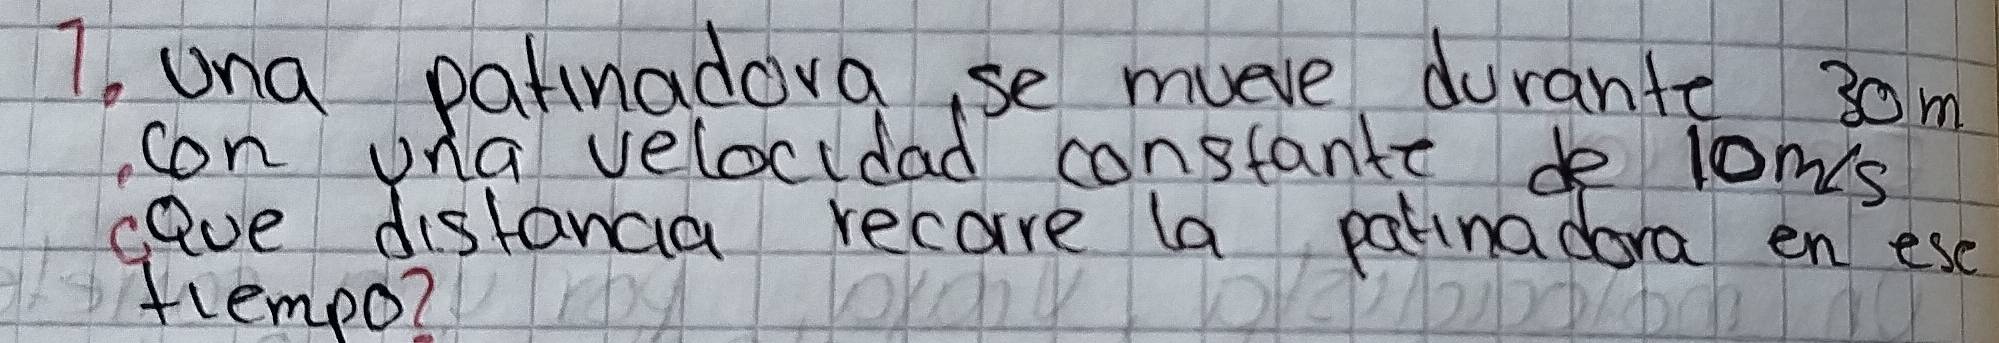 1. Una patinadora se mueve durante 30m
con una velocidad constante de 10m/s
¿Que distancia recorre la patinadora en ese
tiempo?